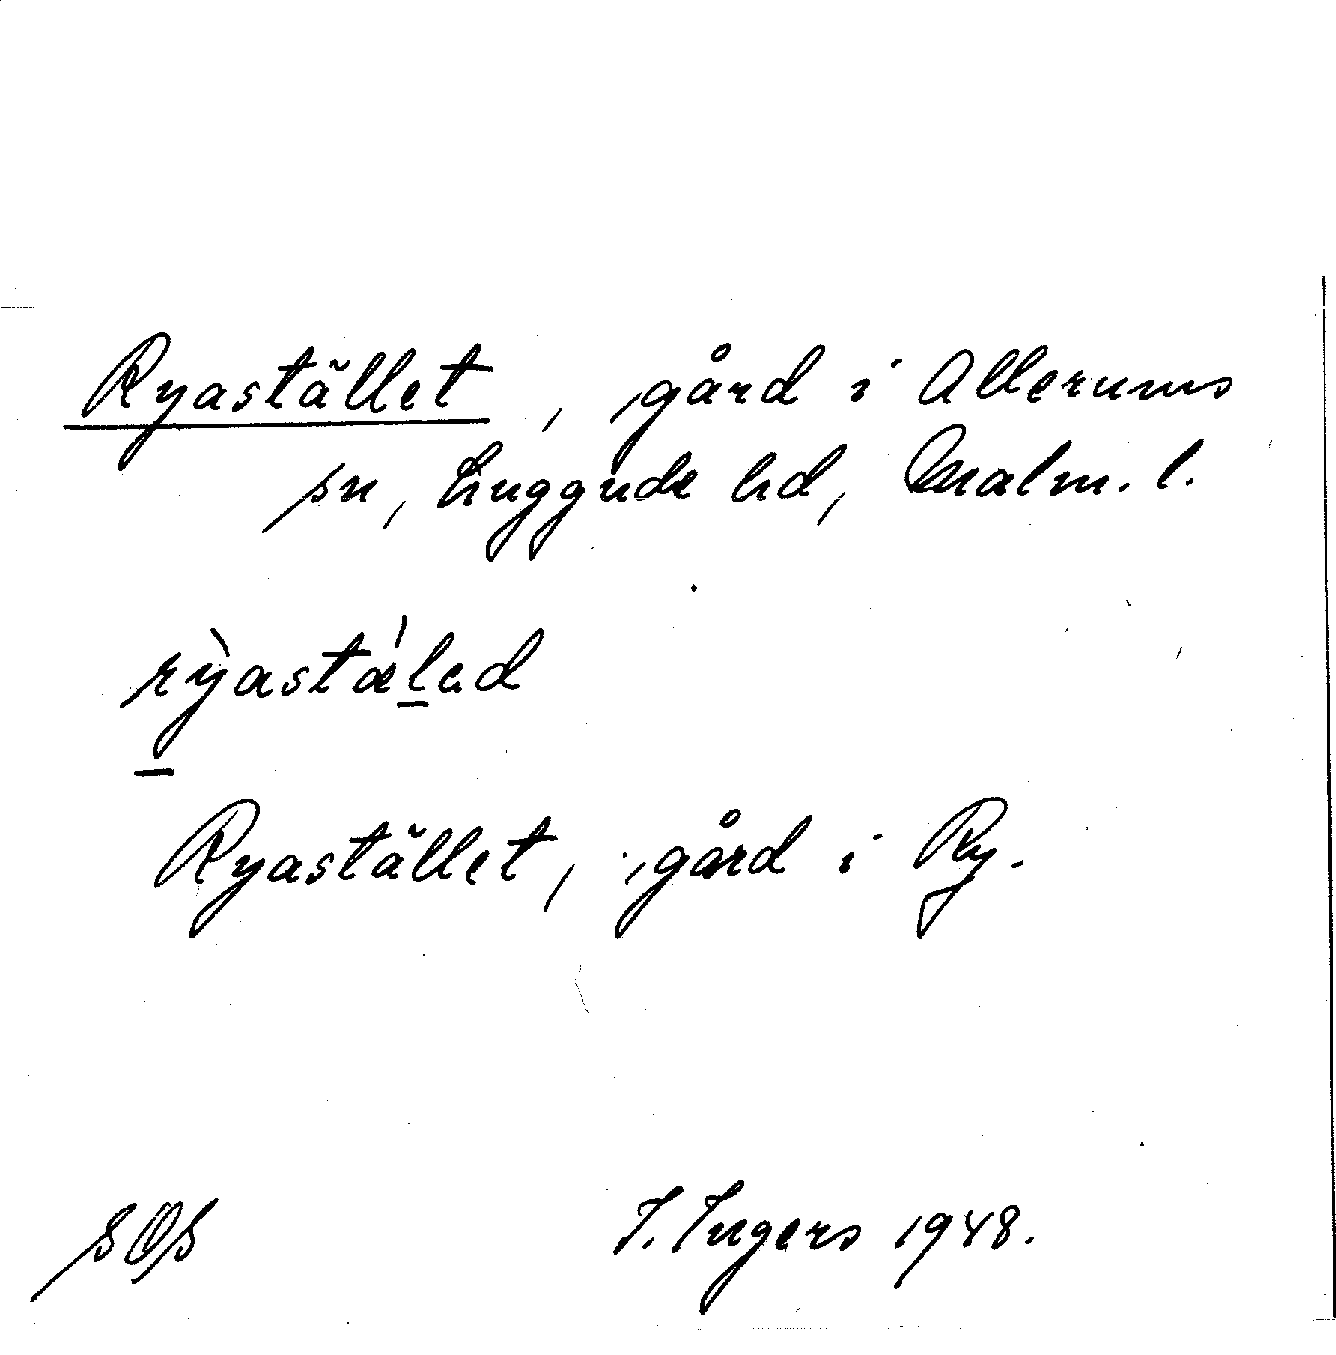 Ryastället, gård i Allerums
sn, Luggude hd, Malm. l.
rỳastǽled
Ryastället, gård i Ry.
SOS
I. Ingers 1948.